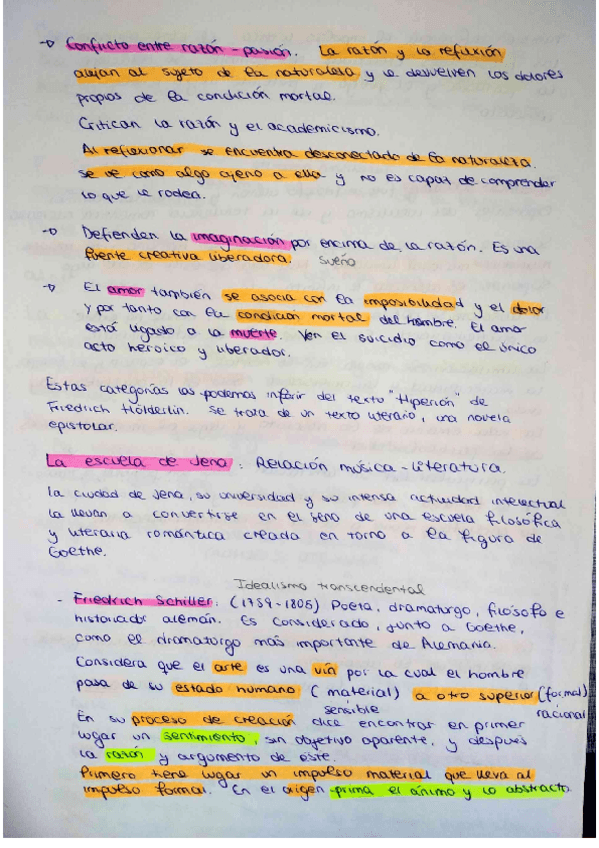 → Conflicto entre razón - pasión. La razón y la reflexión
alejan al sujeto de la naturaleza y le devuelven los dolores
propios de la condición mortal.
Critican la razón y el academicismo.
Al reflexionar se encuentra desconectado de la naturaleza.
se ve como algo ajeno a ella y no es capaz de comprender
lo que le rodea.
→ Defienden la imaginación por encima de la razón. Es una
fuente creativa liberadora. sueño
→ El amor también se asocia con la imposibilidad y el dolor
y por tanto con la condición mortal del hombre. El amor
está ligado a la muerte. Ven el suicidio como el único
acto heroico y liberador.
Estas categorías las podemos inferir del texto "Hiperión" de
Friedrich Hölderlin. Se trata de un texto literario, una novela
epistolar.
La escuela de Jena: Relación música - literatura.
La ciudad de Jena, su universidad y su intensa actividad intelectual
la llevan a convertirse en el seno de una escuela filosófica
y literaria romántica creada en torno a la figura de
Goethe.
Idealismo transcendental
- Friedrich Schiller: (1759-1805) Poeta, dramaturgo, filósofo e
historiador alemán. Es considerado, junto a Goethe,
como el dramaturgo más importante de Alemania.
Considera que el arte es una vía por la cual el hombre
pasa de su estado humano (material) a otro superior (formal)
sensible racional
En su proceso de creación dice encontrar en primer
lugar un sentimiento, sin objetivo aparente, y después
la razón y argumento de éste.
Primero tiene lugar un impulso material que lleva al
impulso formal. En el origen prima el ánimo y lo abstracto.